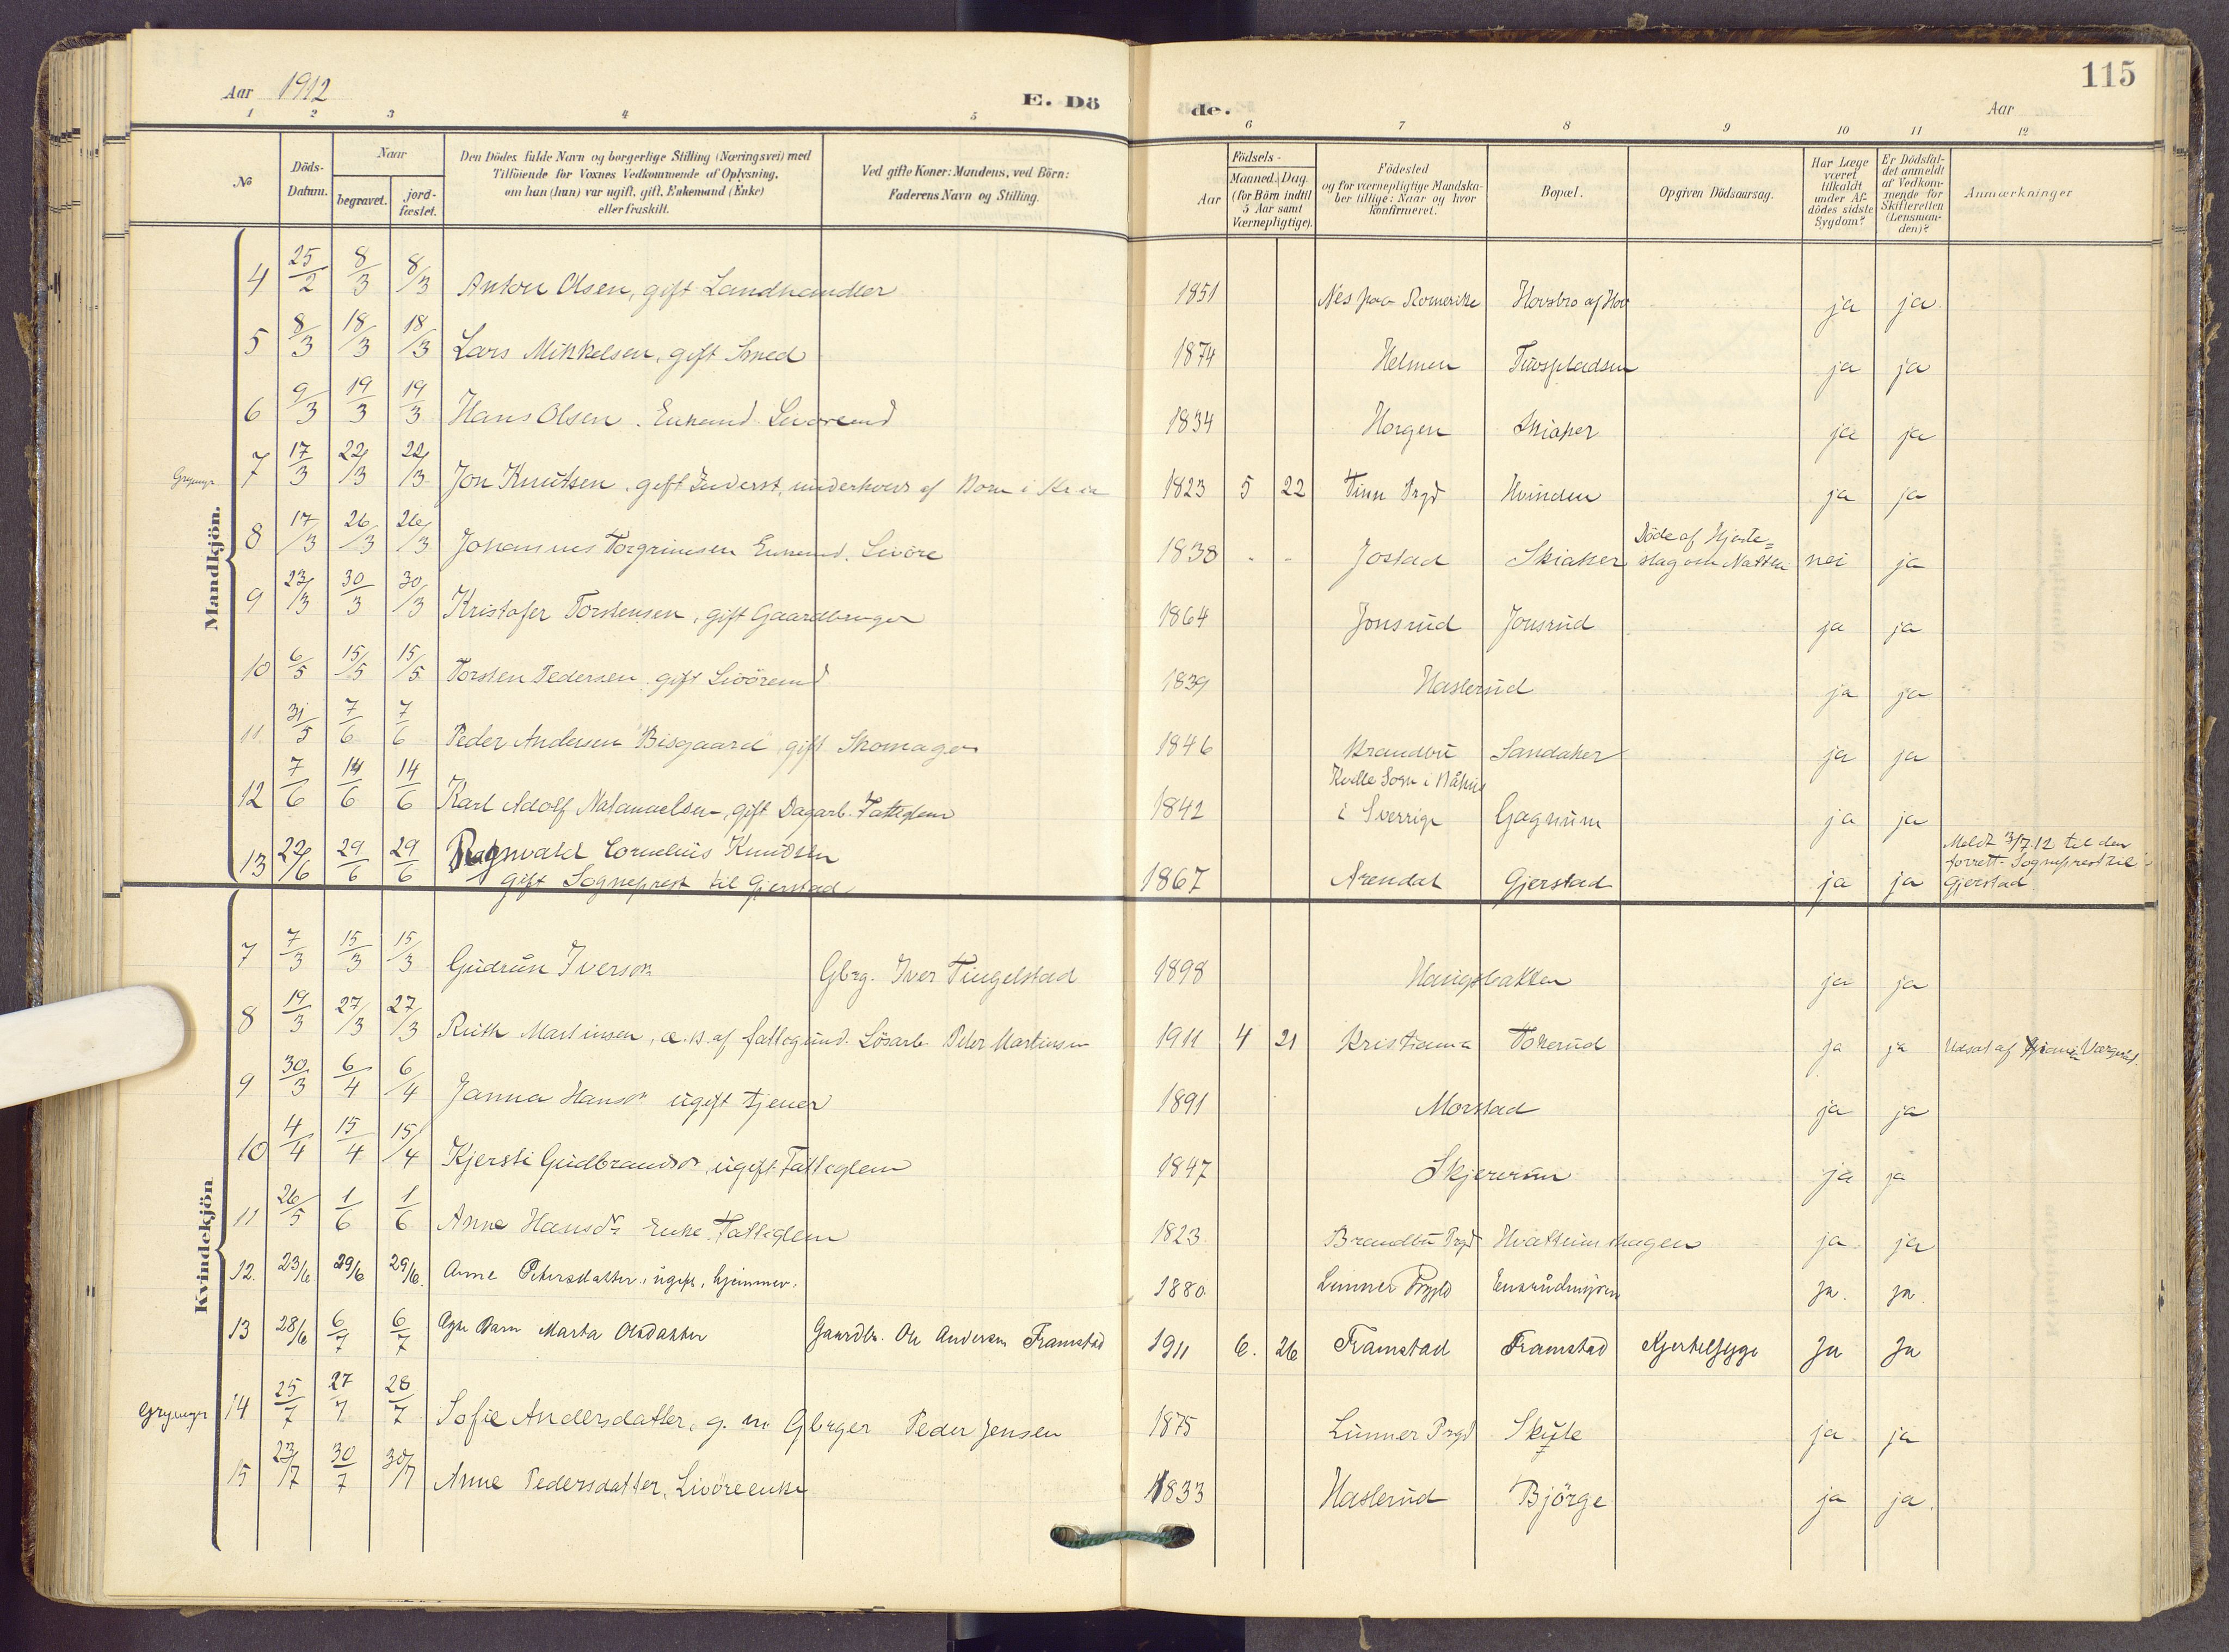 115
Aar 1912
E. Dö
de.
Aar
1 2 3 4 5 6 7 8 9 10 11 12
№
Döds-Datum.
Naar
begravet.
jord-fæstet.
Den Dödes fulde Navn og borgerlige Stilling (Næringsvei) med
Tilföiende for Voxnes Vedkommende af Oplysning,
om han (hun) var ugift, gift, Enkemand (Enke)
eller fraskilt.
Ved gifte Koner: Mandens, ved Börn:
Faderens Navn og Stilling.
Födsels-
Aar
Maaned. Dag.
(for Börn indtil
5 Aar samt
Værnepligtige).
Födested
og for værnepligtige Mandska-
ber tillige: Naar og hvor
konfirmeret.
Bopæl.
Opgiven Dödsaarsag.
Har Læge
været
tilkaldt
under Af-
dödes sidste
Sygdom?
Er Dödsfal-
det anmeldt
af Vedkom-
mende for
Skifteretten
(Lensman-
den)?
Anmærkninger
Mandkjön.
4 25/2 8/3 8/3 Anton Olsen, gift Landhandler 1851 Nes paa Romerike Hovsbro af Hov ja ja
5 8/3 18/3 18/3 Lars Mikkelsen, gift Smed 1874 Helmen ja ja
6 9/3 19/3 19/3 Hans Olsen. Enkemd Livöremd 1834 Horgen Skiaker ja ja
Grymyr 7 17/3 22/3 22/3 Jon Knutsen, gift Inderst, underholds af 1823 5 22 Tinn Prgd Hvinden ja ja
8 17/3 26/3 26/3 Johannes Torgrimsen Enkemd. Livöre 1838 - - Jostad Skiaker Döde af Hjerte=
slag om Natten nei ja
9 23/3 30/3 30/3 Kristofer Torstensen, gift Gaardbruger 1864 Jonsrud Jonsrud ja ja
10 6/5 15/5 15/5 Torsten Pedersen gift Livöremd 1839 Haslerud ja ja
11 31/5 7/6 7/6 Peder Andersen "Bisgaard" gift Skomager 1846 Brandbu Sandaker ja ja
12 7/6 14/6 14/6 Karl Adolf Natanaelsen, gift Dagarb. Fattiglem 1842 Kville Sogn i
i Sverrige Gagnum ja ja
13 22/6 29/6 29/6 Ragnvald Cornelius Knudsen
gift Sogneprest til Gjerstad 1867 Arendal Gjerstad ja ja Meldt 3/7.12 til den
forrett. Sogneprest til
Gjerstad
Kvindekjön
7 7/3 15/3 15/3 Gudrun Iversdr Gbrg. Iver Tingelstad 1898 Haugsbakken ja ja
8 19/3 27/3 27/3 Ruth Martinsen, æ. B. af Lösarb. Peter Martinsen 1911 4 21 Kristiania Tokerud ja ja Udsat af Værgeråd.
9 30/3 6/4 6/4 Janna Hansdr ugift tjener 1891 Morstad ja ja
10 4/4 15/4 15/4 Kjersti Gudbrandsdr, ugift Fattiglem 1847 Skjerum ja ja
11 26/5 1/6 1/6 Anne Hansdr Enke, Fattiglem 1823 Brandbu Prgd Hvattumshagen ja ja
12. 23/6 29/6 29/6. Anne Petersdatter, ugift, hjemmev. 1880. Lunner Prgld ja. ja.
13 28/6 6/7 6/7 Egte Barn Marta Olsdatter Gaardbr. Ole Andersen Framstad 1911 6. 26 Framstad Framstad Kjertelsyge Ja Ja
Grymyr 14 25/7 27/7 28/7 Sofie Andersdatter, g. m Gbrger Peder Jensen 1875 Lunner Prgd Skute ja ja
15 23/7 30/7 30/7 Anne Pedersdatter, Livöreenke 1833 Haslerud Björge ja ja.